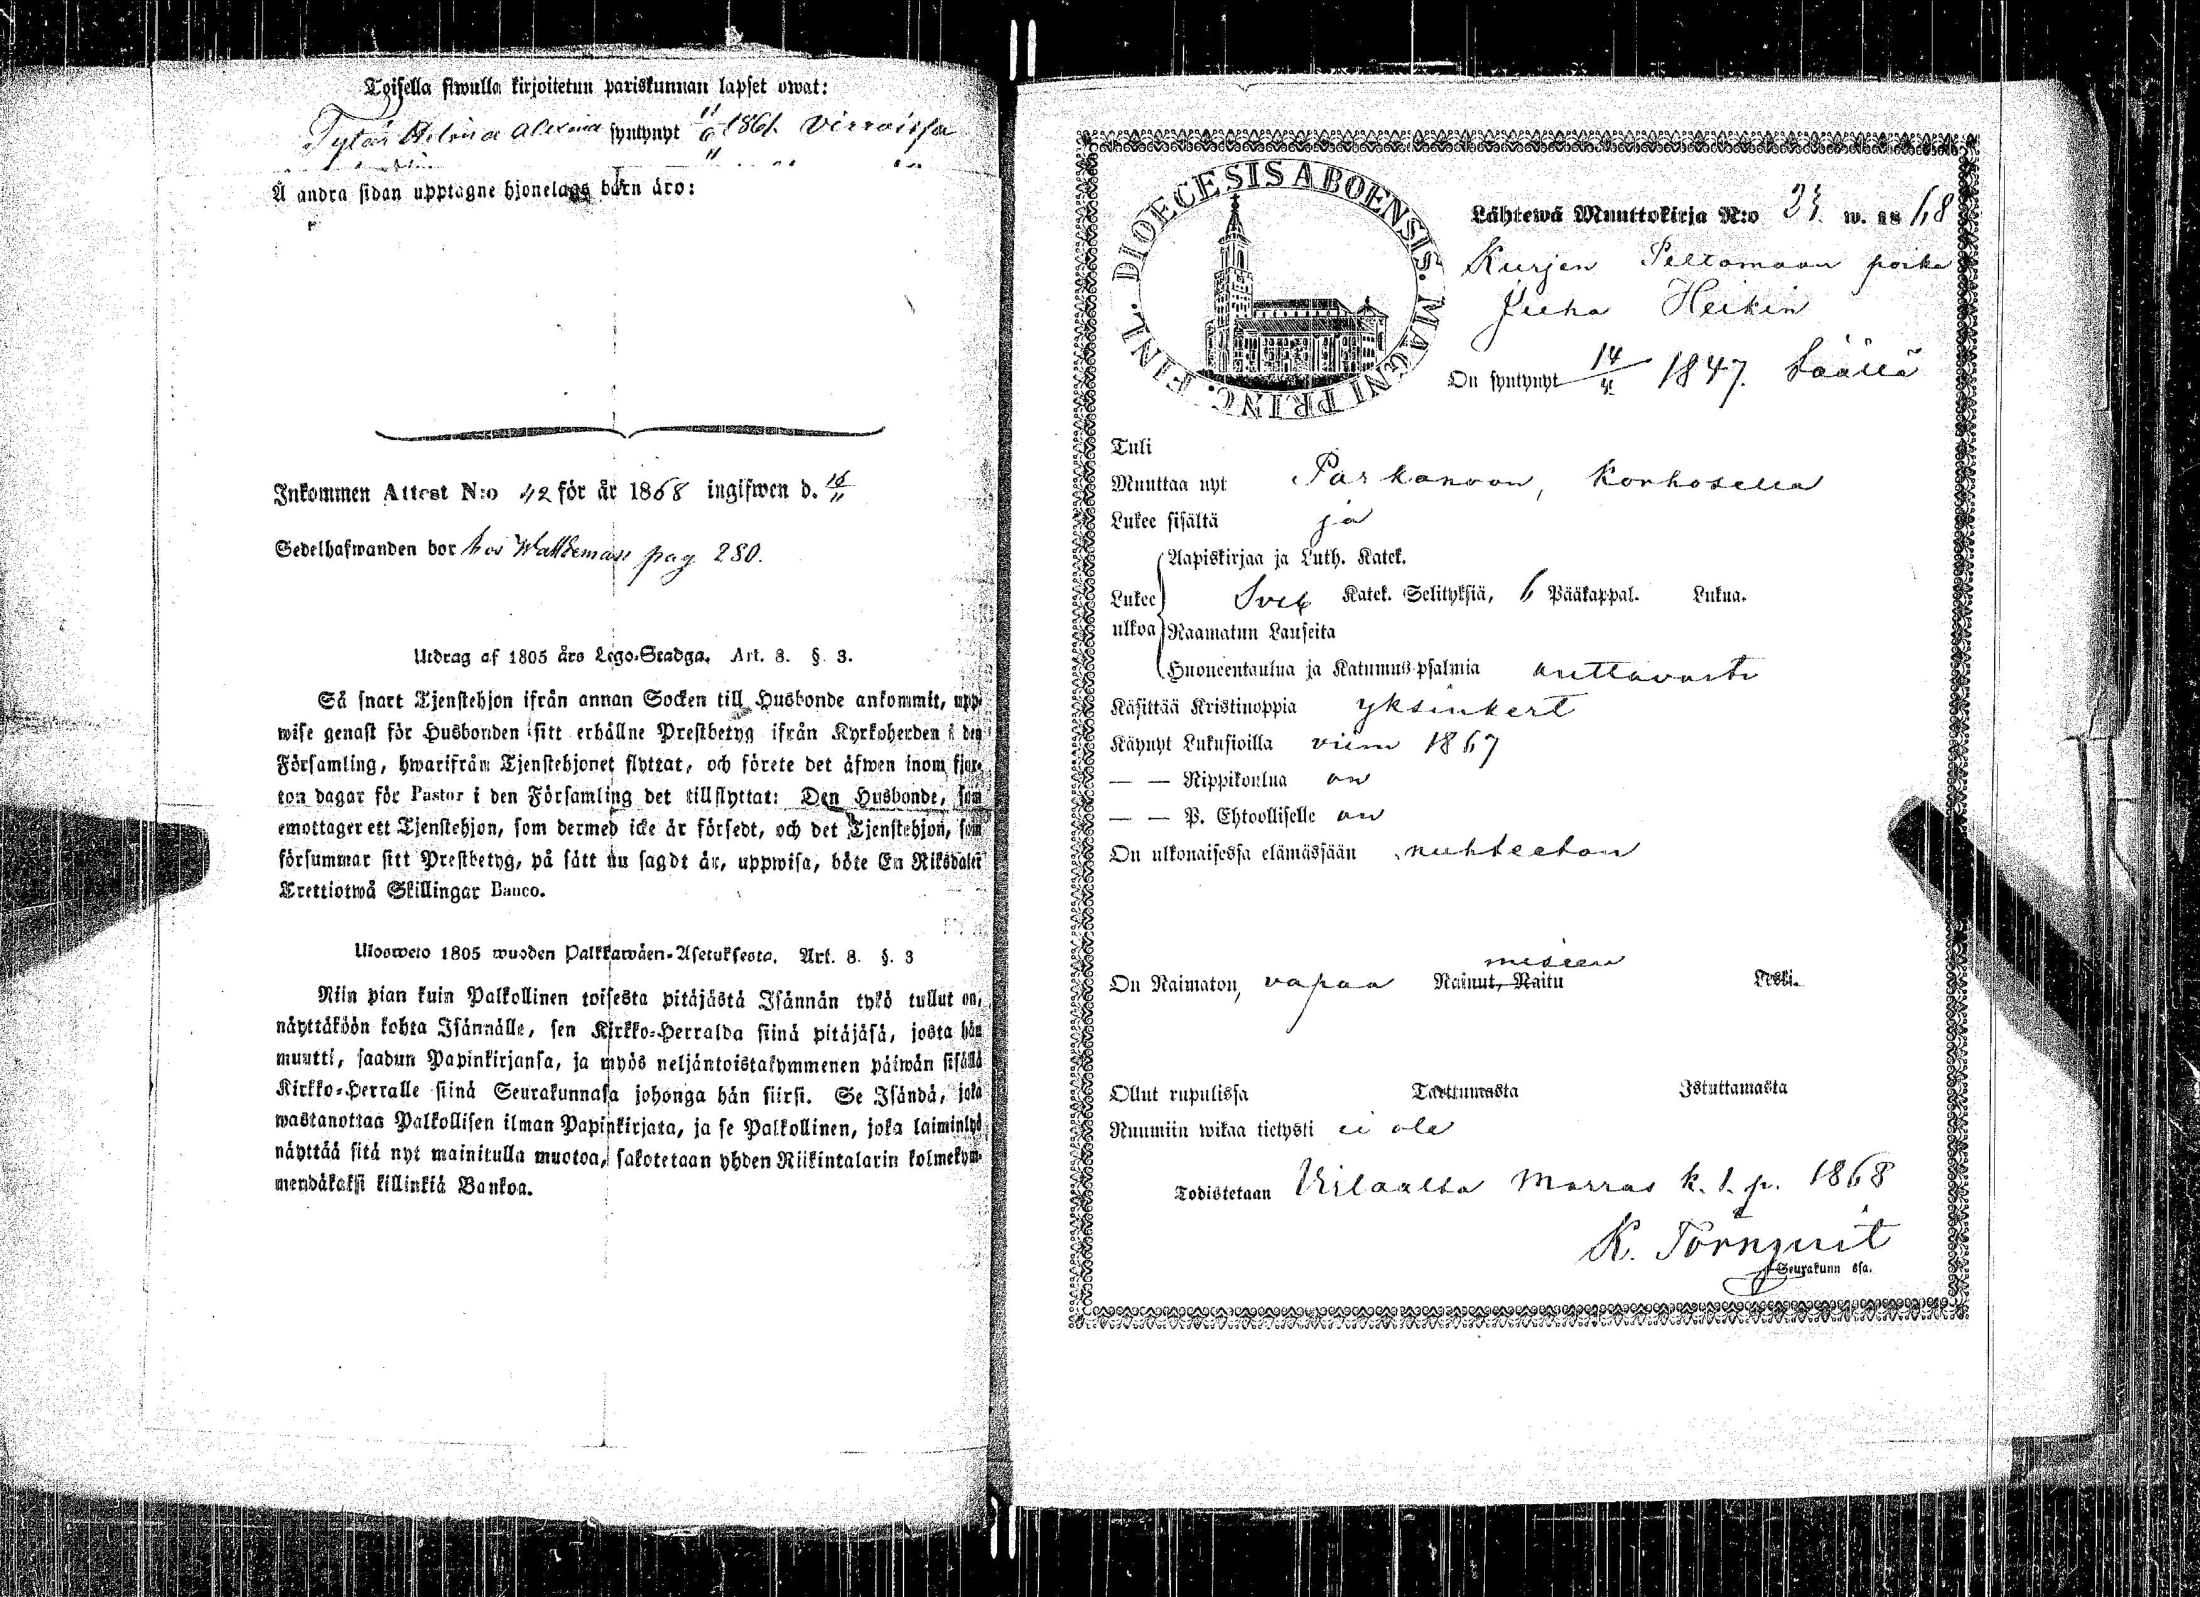 Toisella siwulla kirjoitetun pariskunnan lapset owat:
Tytär syntynyt 11/6 1861. Virroissa
Å andra sidan upptagne hjonelags barn äro:
Inkommen Attest N:o 42 för år 1868 ingifwen d. 16/11
Sedelhafwanden bor hos pag 280.
Utdrag af 1805 års Lego-Stadga. Art. 8. §. 3.
Så snart Tjenstehjon ifrån annan Socken till Husbonde ankommit, upp-
wise genast för Husbonden sitt erhållne Prestbetyg ifrån Kyrkoherden i den
Församling, hwarifrån Tjenstehjonet flyttat, och förete det äfwen inom fjor-
ton dagar för Pastor i den Församling det tillflyttat: Den Husbonde, som
emottager ett Tjenstehjon, som dermed icke är försedt, och det Tjenstehjon, som
försummar sitt Prestbetyg, på sätt nu sagdt är, uppwisa, böte En Riksdaler
Trettiotwå Skillingar Banco.
Ulosweto 1805 wuoden Palkkawäen-Asetuksesta. Art. 8. §. 3
Niin pian kuin Palkollinen toisesta pitäjästä Isännän tykö tullut on,
näyttäköön kohta Isännälle, sen Kirkko-Herralda siinä pitäjäsä, josta hän
muutti, saadun Papinkirjansa, ja myös neljäntoistakymmenen päiwän sisällä
Kirkko-Herralle siinä Seurakunnasa johonga hän siirsi. Se Isändä, joka
wastanottaa Palkollisen ilman Papinkirjata, ja se Palkollinen, joka laiminlyö
näyttää sitä nyt mainitulla muotoa, sakotetaan yhden Riikintalarin kolmekym-
mendäkaksi killinkiä Bankoa.
DIOECESIS ABOENSIS. MAGNI PRINC. FINL.
Lähtewä Muuttokirja N:o 23. w. 1868
Kurjen Peltomaan poika
Juha Heikin
On syntynyt 14/4 1847. täällä
Tuli
Muuttaa nyt Parkanoon, Korhosella
Lukee sisältä ja
Aapiskirjaa ja Luth. Katek.
Lukee Sveb Katek. Selityksiä, 6 Pääkappal. Lukua.
ulkoa Raamatun Lauseita
Huoneentaulua ja Katumus-psalmia auttavasti
Käsittää Kristinoppia yksinkert
Käynyt Lukusioilla viim 1867
— — Rippikoulua on
— — P. Ehtoolliselle on
On ulkonaisessa elämässään nuhteeton
On Naimaton, vapaa Nainut, Naitu Leski.
Ollut rupulissa Tarttumasta Istuttamasta
Ruumiin wikaa tietysti ei ole
Todistetaan Marras k. 1. p. 1868
K. Törnqvist
Seurakunn ssa.